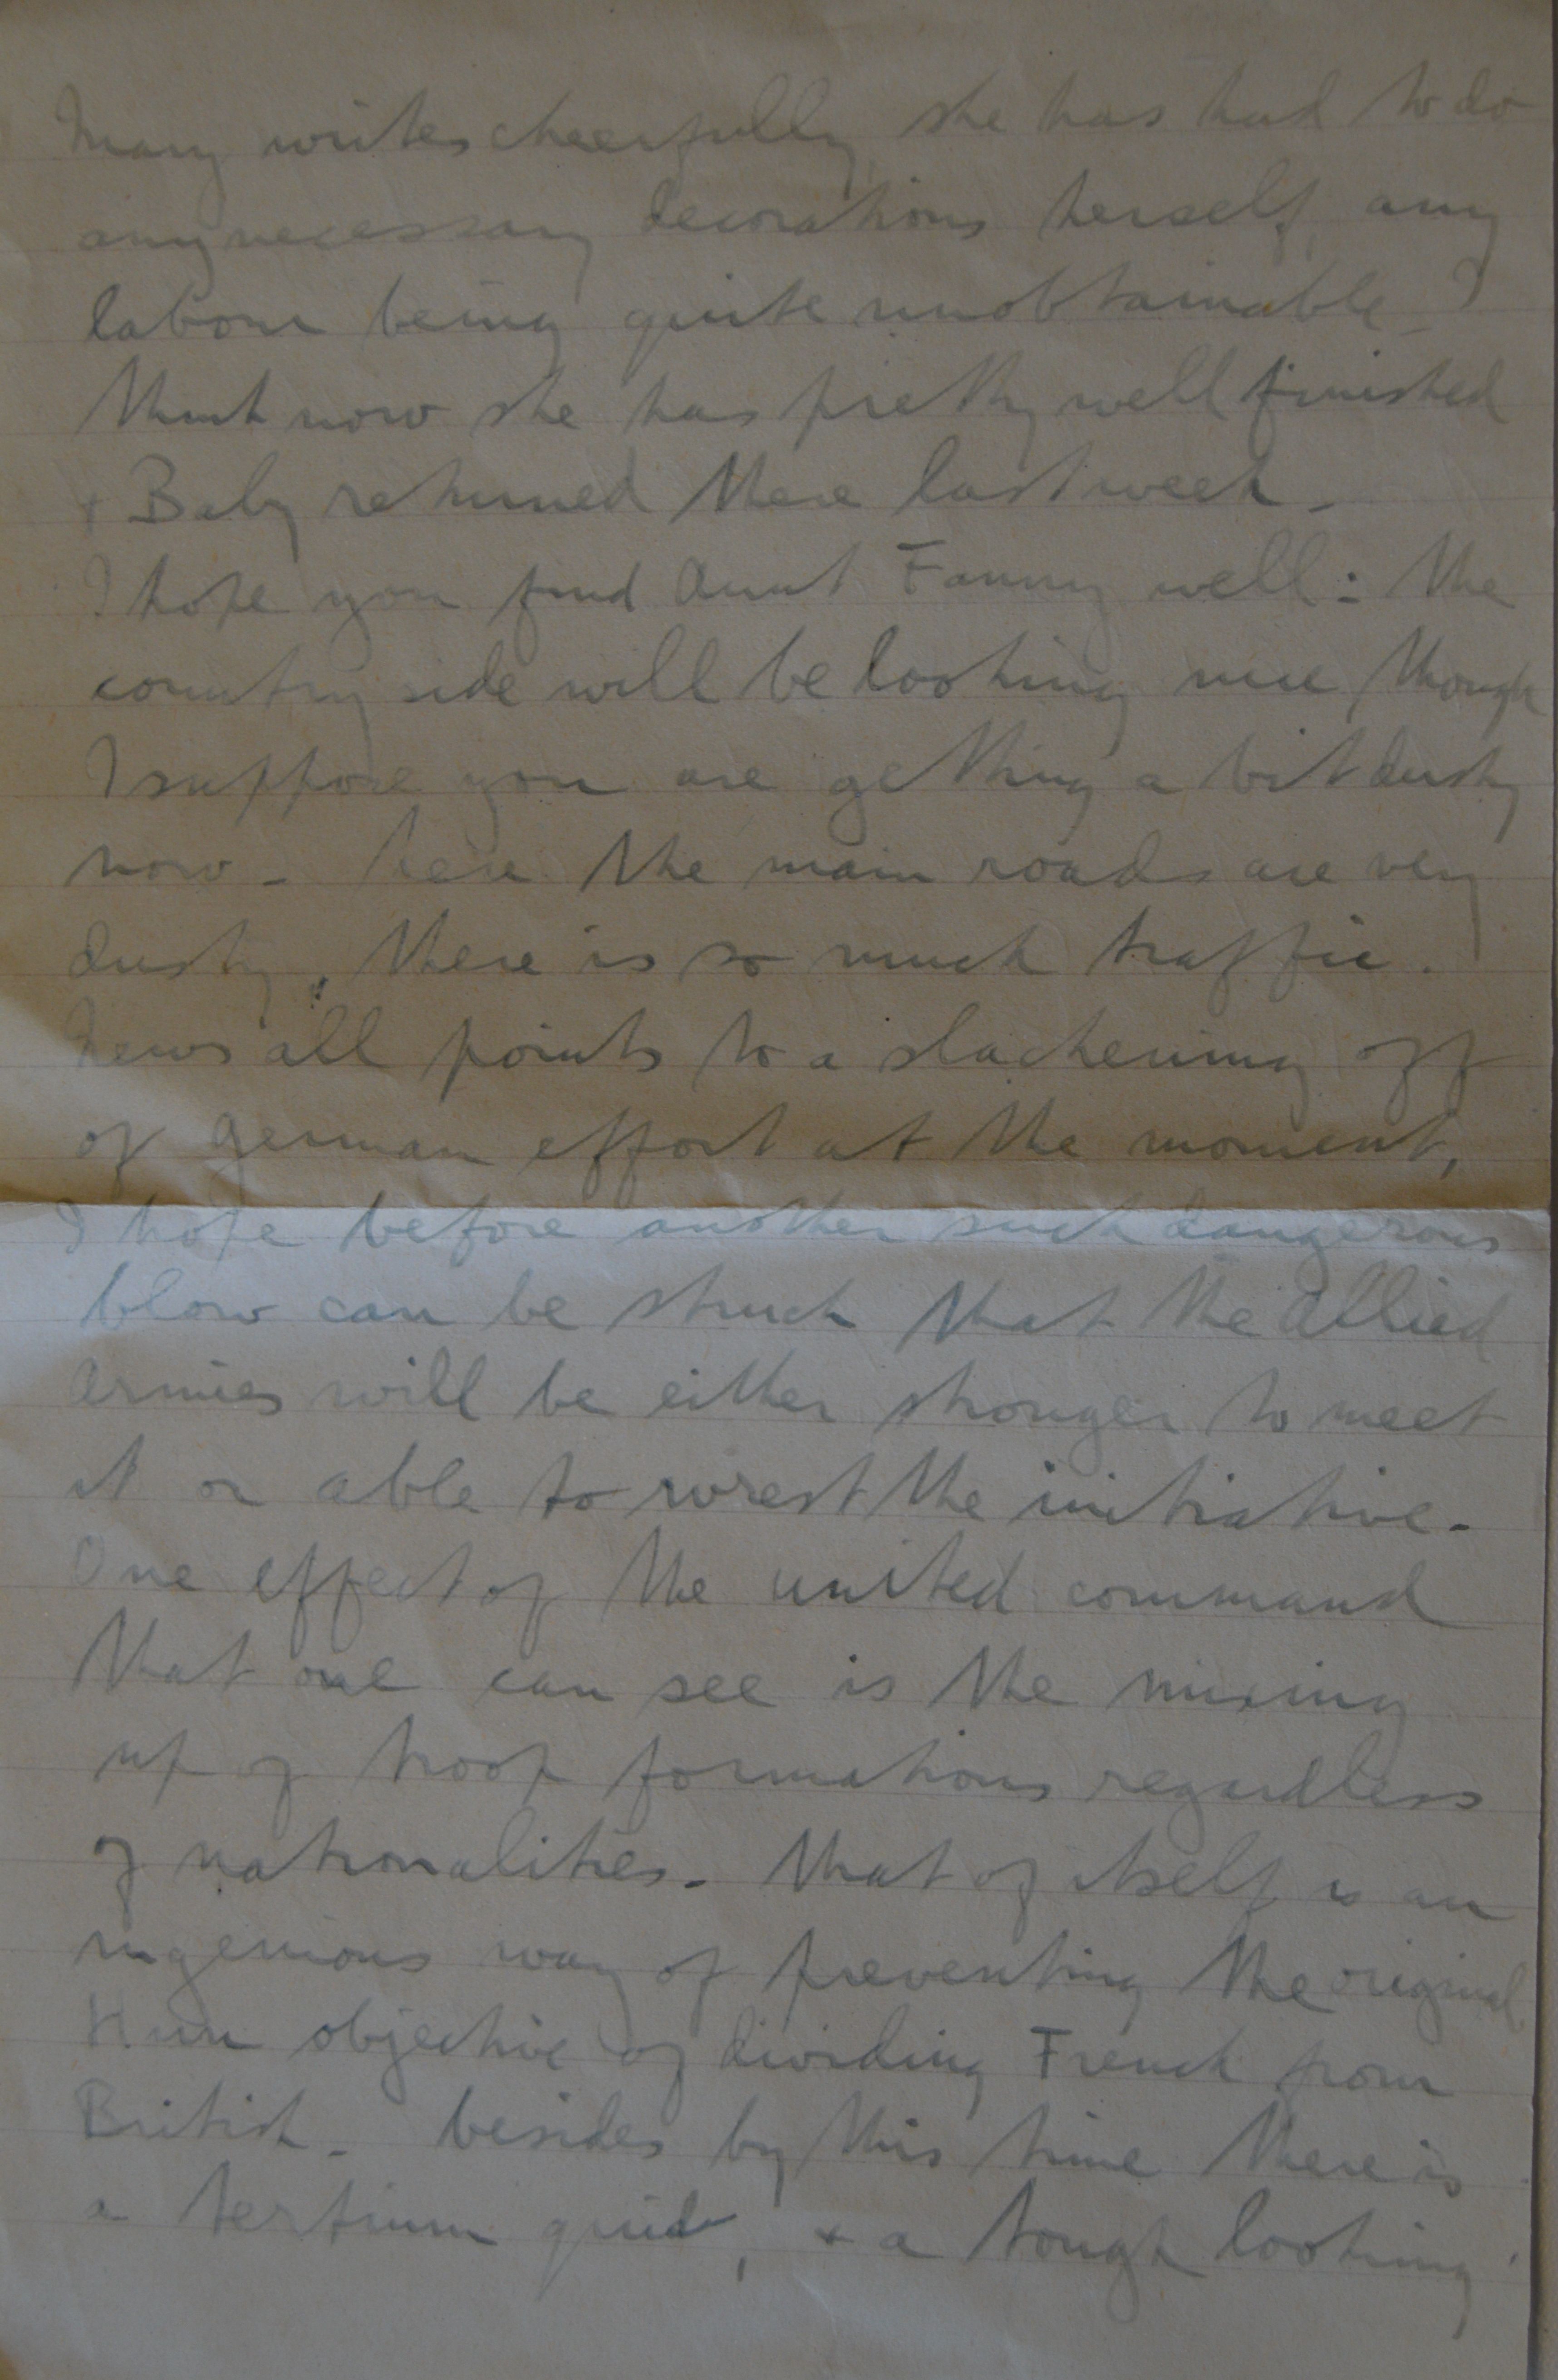 Mary writes cheerfully, she has had to do
any necessary decorations herself, any
labour being quite unobtainable. I
think now she has pretty well finished
& Baby returned there last week.
I hope you find Aunt Fanny well: the
country side will be looking nice, though
I suppose you are getting a bit dusty
now - here the main roads are very
dusty, there is so much traffic.
News all points to a slackening off
of german effort at the moment,
I hope before another such dangerous
blow can be struck that the Allied
Armies will be either stronger to meet
it or able to wrest the initiative.
One effect of the united command
that one can see is the mixing
up of troop formations regardless
of nationalities. That of itself is an
ingenious way of preventing the original
Hun objective of dividing French from
British - besides by this time there is
a tertium quid, & a tough looking